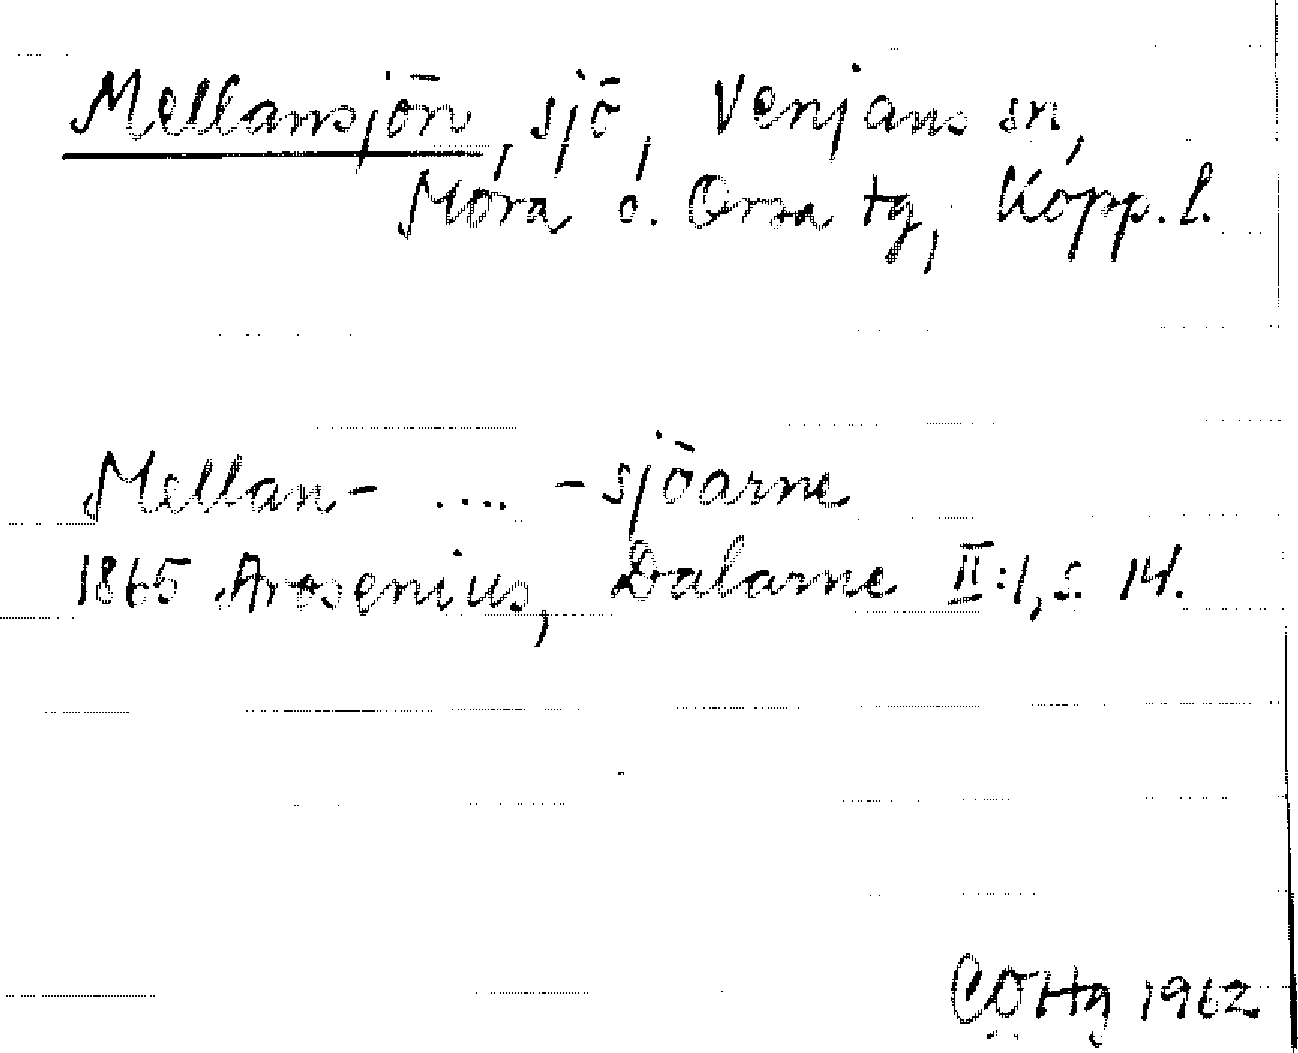 Mellansjön, sjö, Venjans sn,
Mora o. Orsa tg, Kopp. l.
Mellan- .... -sjöarne
1865 Arosenius, Dalarne II:1, s. 14.
CÖHg 1962